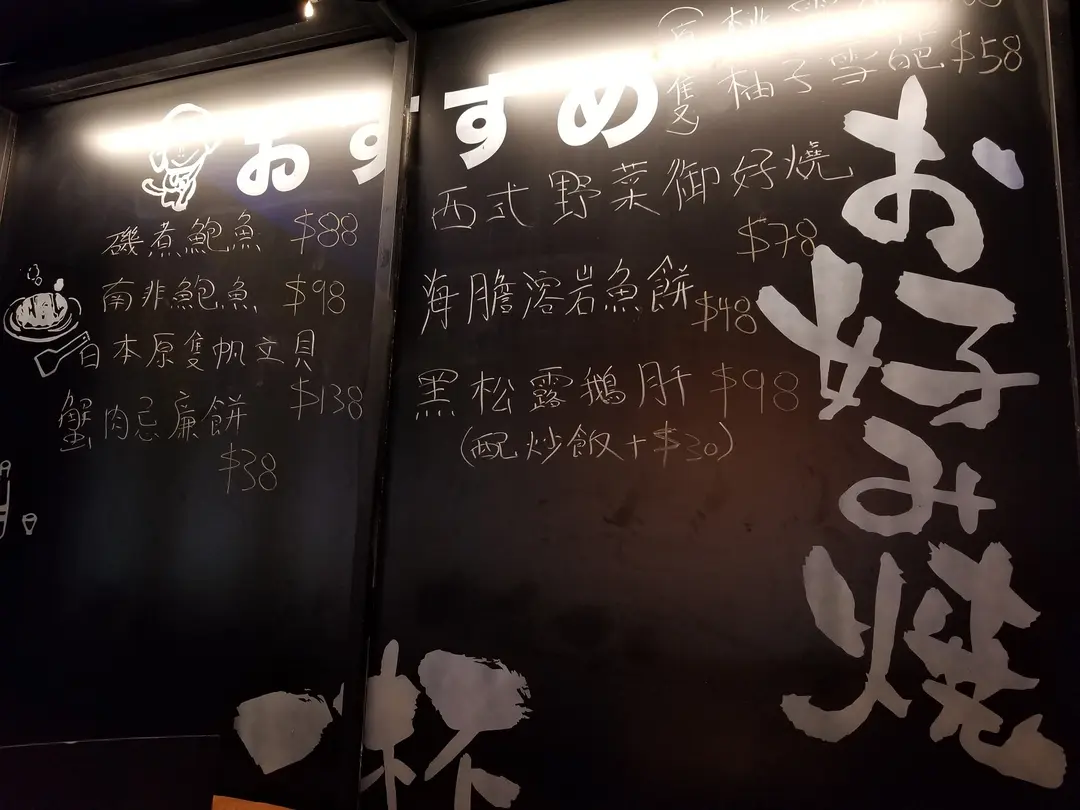 おす
磯煮鮑魚 $88
南非鮑魚 $98
日本原隻帆立貝
$138
蟹肉忌廉餅
$38
すめ
柚子雪葩 $58
西式野菜御好燒
$78
海膽溶岩魚餅 $48
黑松露鵝肝 $98
(配炒飯+$30)
お好み焼
一杯